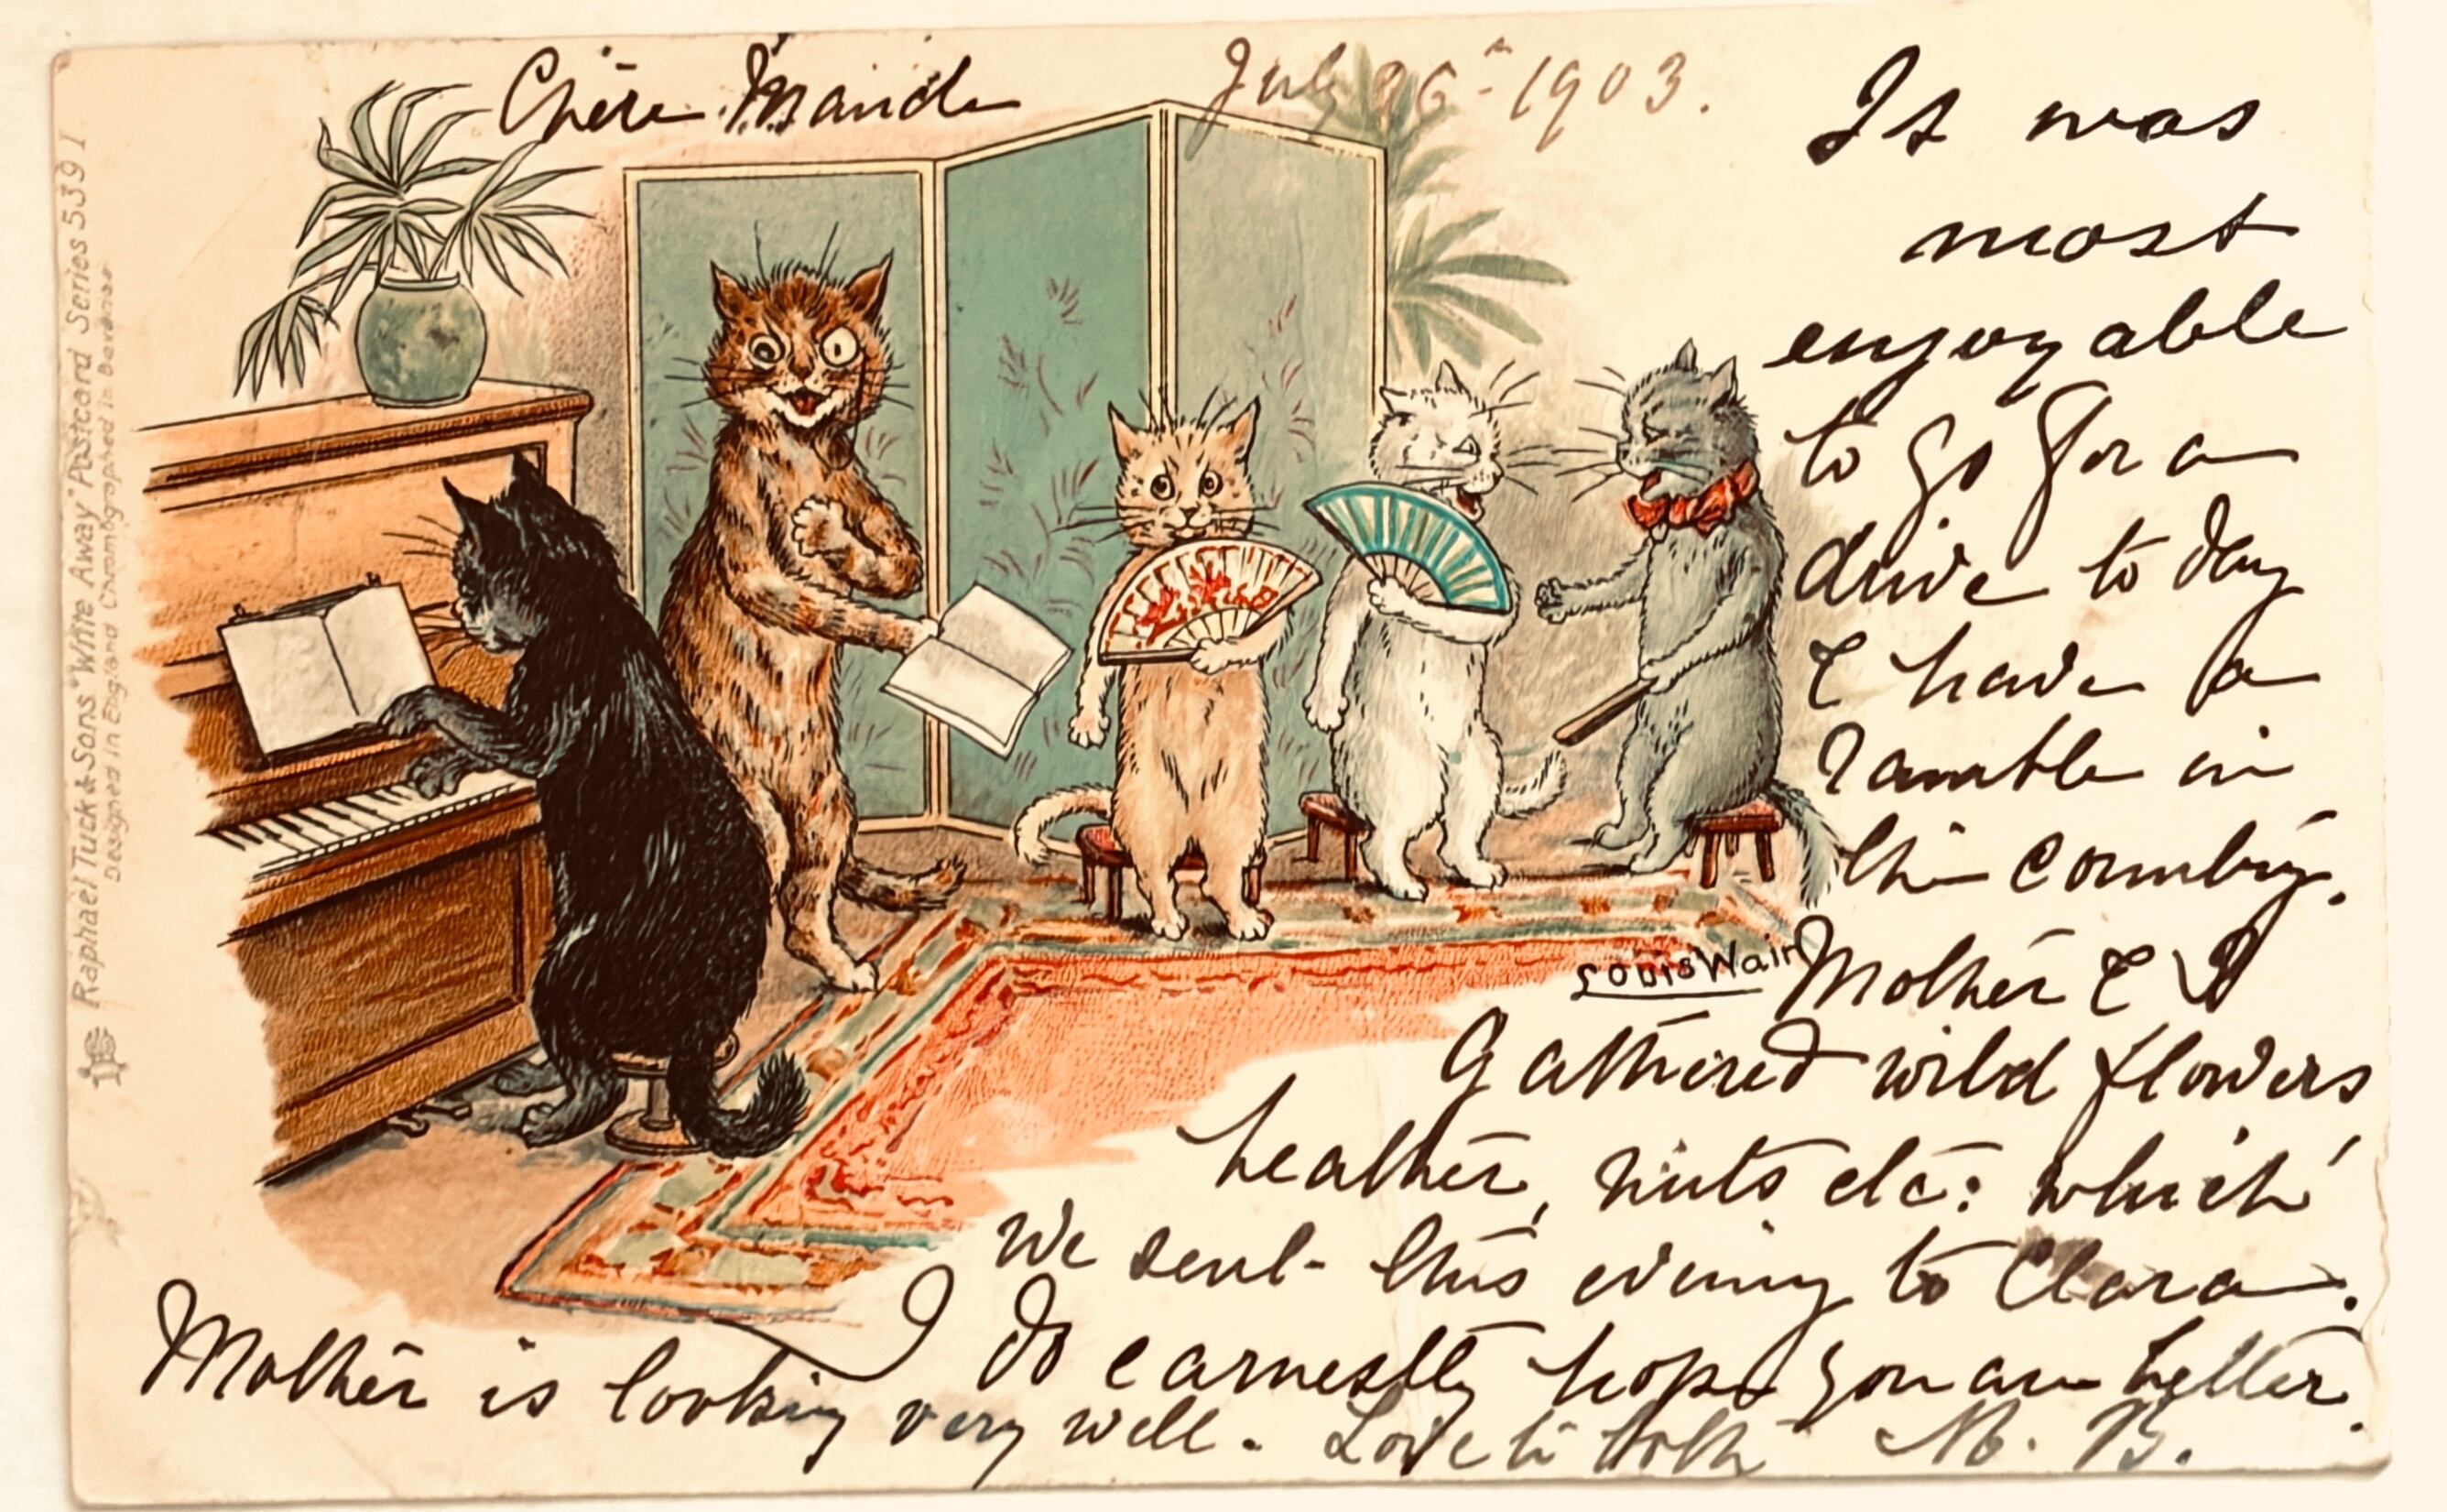 Chère Maude
July 26th 1903.
It was
most
enjoyable
to go for a
drive to day
& have a
ramble in
the country.
Mother & I
Gathered wild flowers
heather, nuts etc: which
we sent this evening to Clara.
I do earnestly hope you are better.
Mother is looking very well. Love to both M. B.
Louis Wain
Raphael Tuck & Sons "Write Away" Postcard Series 539 I
Designed in England Chromographed in Bavaria